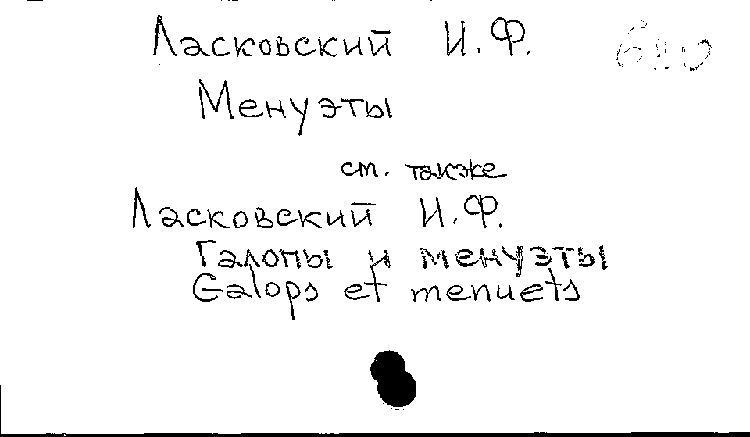 Ласковский И.Ф.
Менуэты
см. также
Ласковский И.Ф.
Галопы и менуэты
Galops et menuets